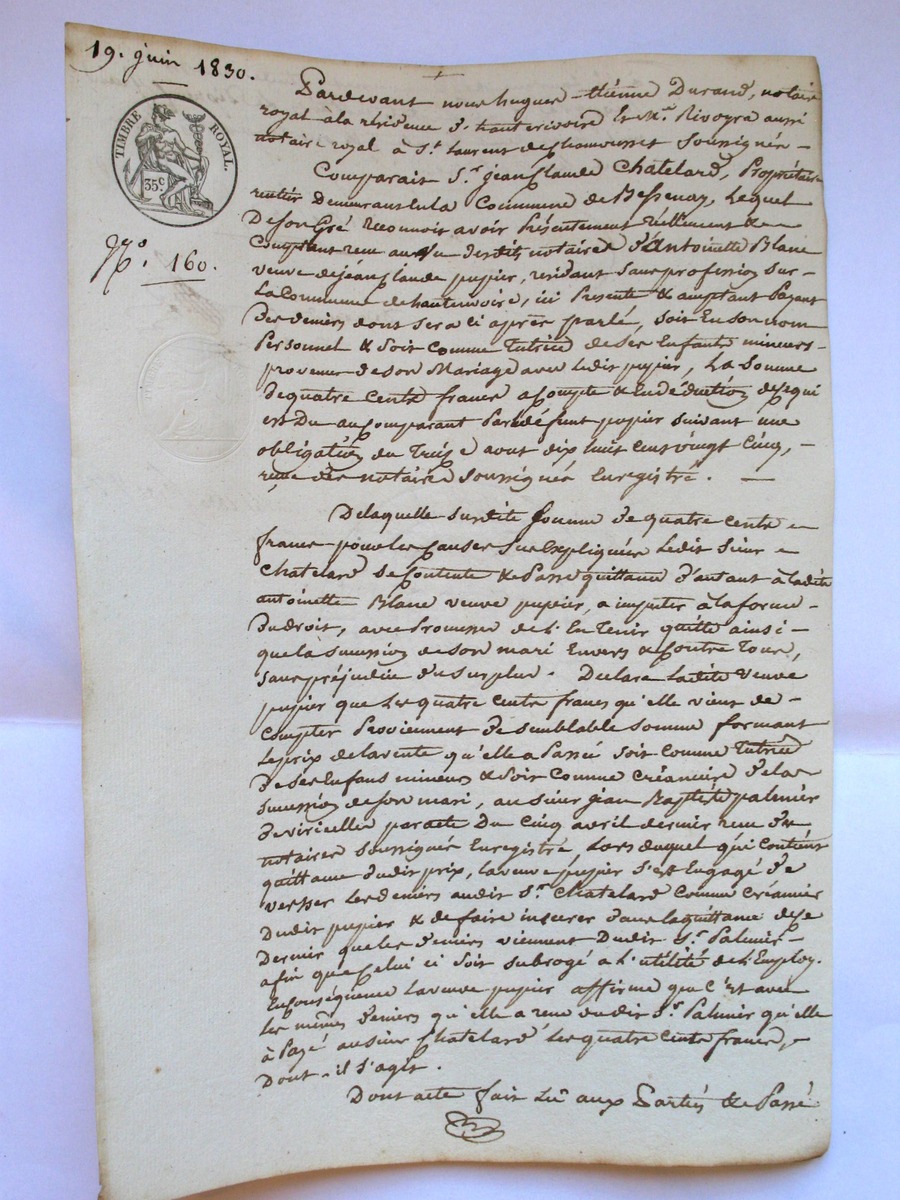 19. juin 1830.
TIMBRE ROYAL.
35 c.
N.o 160.
Pardevant nous hugues - étienne Durand, notaire
royal à la résidence d'hauterivoire & M.e Rivoyre aussi
notaire royal à S.t Laurent de chamousset soussignés -
Comparait S.r jean Claude Chatelard, Propriétaire
rentier Demeurant en la Commune de Bessenay, Lequel
De son Gré reconnoit avoir Présentement réellement & -
Comptant reçu au vu desdits notaires d'Antoinette Blanc
veuve de jean Claude pupier, résidant sans profession sur -
La Commune de hauterivoire, ici Présente & acceptant Payant
Des deniers dont sera ci après parlé, soit En son nom
Personnel & soit comme Tutrice de ses Enfants mineurs -
provenus de son Mariage avec ledit pupier, La somme
de quatre cents francs acompte & En déduction de ce qui
est Du au Comparant Par le défunt pupier suivant une
obligation du Treize aout dix huit cent vingt Cinq, -
reçue des notaires soussignés Enregistré. -
De laquelle susdite Somme de quatre cents -
francs pour les Causes sus Expliquées Ledit Sieur -
Chatelard se Contente & Passe quittance d'autant à ladite
antoinette Blanc veuve pupier, a imputer à la forme -
Du droit, avec Promesse de L'En Tenir quitte ainsi -
que la succession de son mari Envers & Contre Tous,
sans préjudice du surplus. Declare Ladite veuve
pupier que Les quatre cents francs qu'elle vient de -
compter Proviennent de semblable somme formant
Le prix de la vente qu'elle a Passé soit comme Tutrice
de ses Enfans mineurs & soit comme créancière de la
succession de son mari, au sieur jean Baptiste palmier
de viricelles par acte Du Cinq avril dernier reçu des
notaires soussignés Enregistré, Lors duquel qui Contient
quittance dudit prix, la veuve pupier s'est Engagé de
verser Les deniers audit S.r Chatelard comme Créancier
Dudit pupier & de faire inserer dans la quittance de ce
Dernier que les deniers viennent Dudit S.r Palmier -
afin que Celui ci soit subrogé a L'utilité de L'Employ.
En Conséquence La veuve pupier affirme que c'Est avec
Les mêmes deniers qu'elle a reçu dudit S.r Palmier qu'elle
à Payé au sieur Chatelard les quatre cents francs, -
Dont - il s'agit.
Dont acte fait Lu aux Parties & Passé